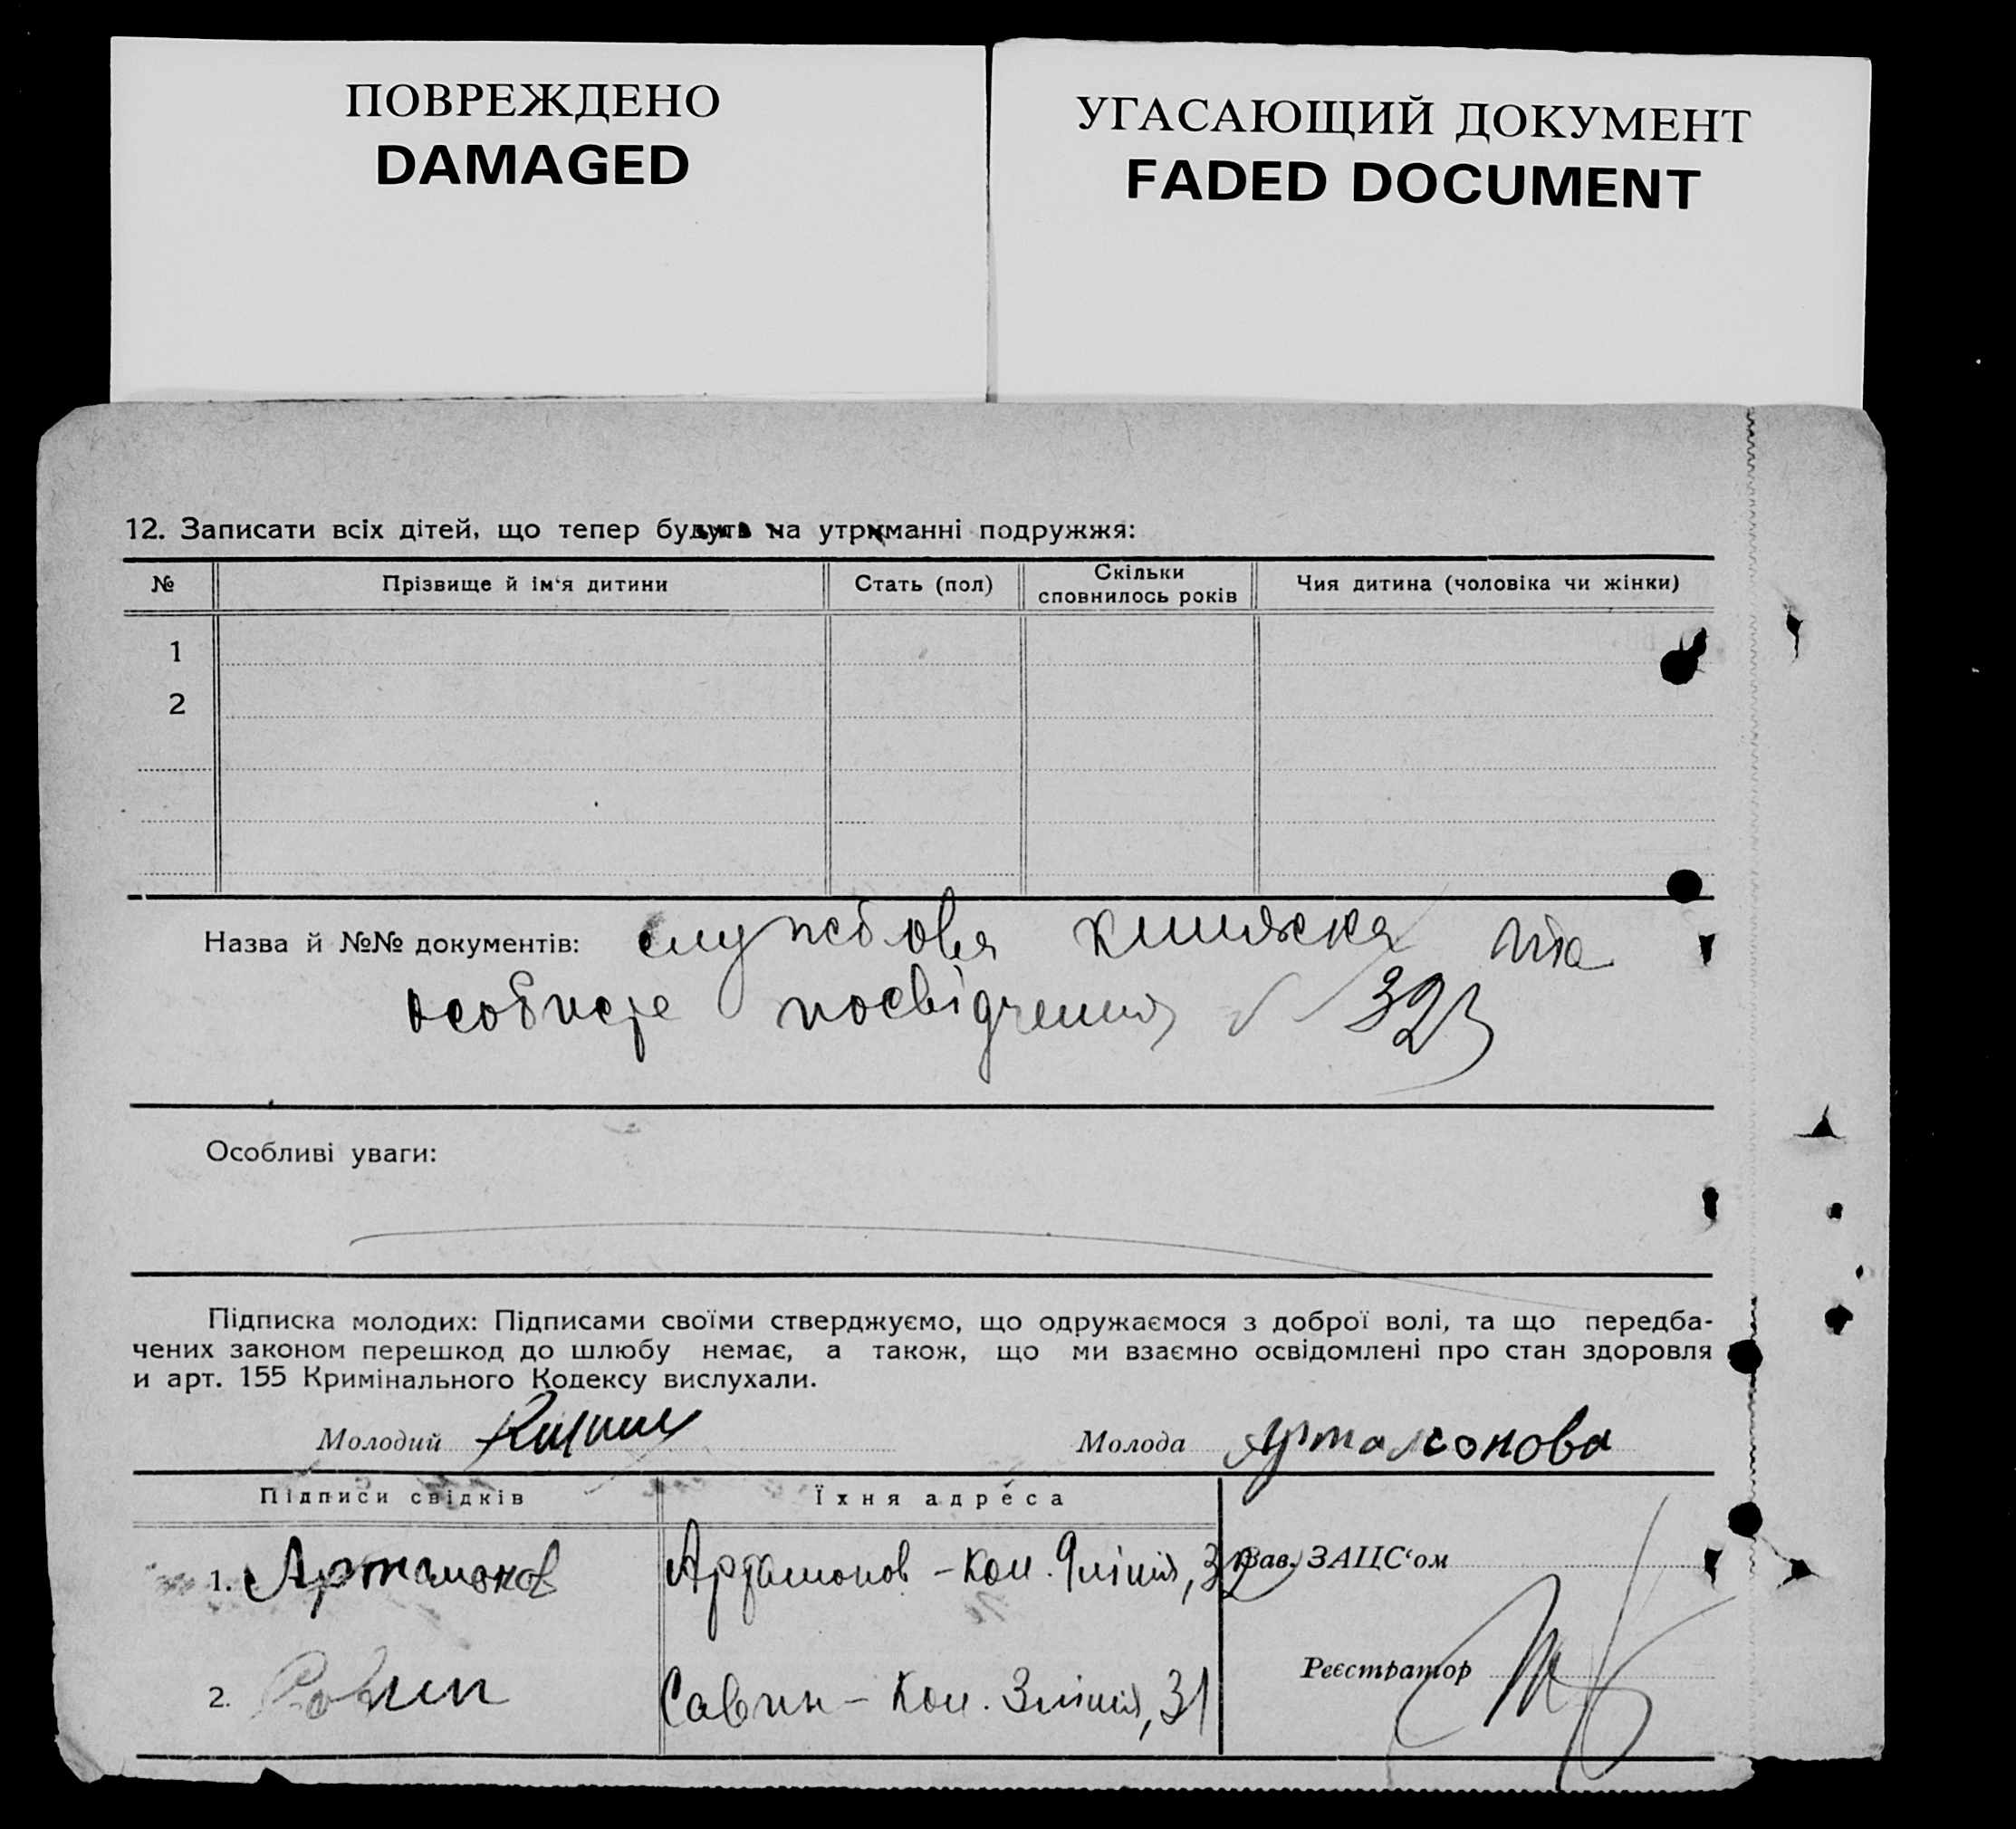 ПОВРЕЖДЕНО
DAMAGED
УГАСАЮЩИЙ ДОКУМЕНТ
FADED DOCUMENT
12. Записати всіх дітей, що тепер будуть на утриманні подружжя:
№ Прізвище й ім‘я дитини Стать (пол) Скільки сповнилось років Чия дитина (чоловіка чи жінки)
1
2
Назва й №№ документів: службова книжка та
особисте посвідчення № 323
Особливі уваги:
Підписка молодих: Підписами своїми стверджуємо, що одружаємося з доброї волі, та що передба-
чених законом перешкод до шлюбу немає, а також, що ми взаємно освідомлені про стан здоровля
и арт. 155 Кримінального Кодексу вислухали.
Молодий Молода Артамонова
Підписи свідків Їхня адреса
1. Артамонов Артамонов - Кол. 9 лінія, 32 Зав. ЗАЦС‘ом
2. Савин Савин - Кол. 3 лінія, 31 Реєстратор